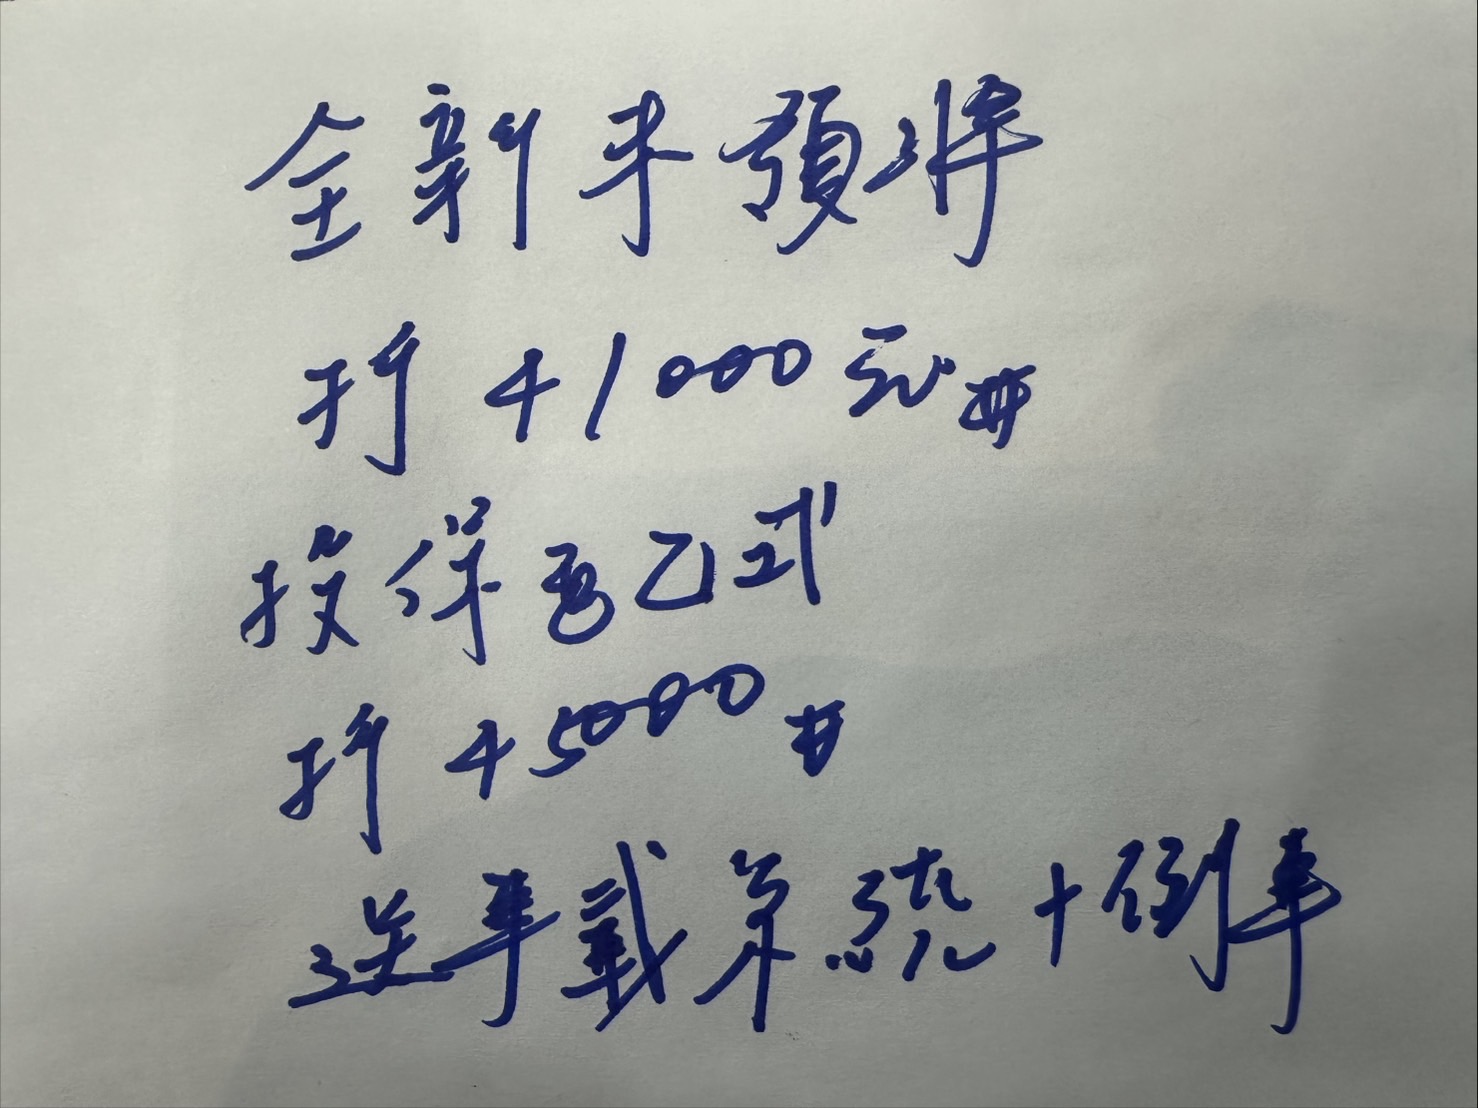 全新未領牌
折41000元#
投保丙乙式
折45000#
送車載系統+倒車